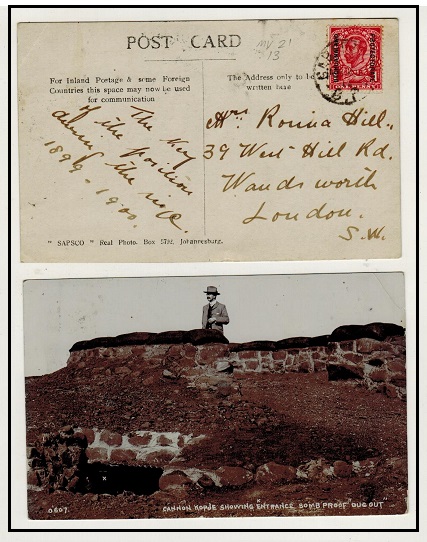 POST CARD
For Inland Postage & some Foreign
Countries this space may now be used
for communication
The Address only to be
written here
The key
of the position
during the siege
1899-1900.
Mrs. Ronna Hill.,
39 West Hill Rd.
Wandsworth
London.
S.W.
ONE PENNY
"SAPSCO" Real Photo. Box 5792, Johannesburg.
0607. CANNON KOPJE SHOWING "ENTRANCE BOMB PROOF "DUG OUT"